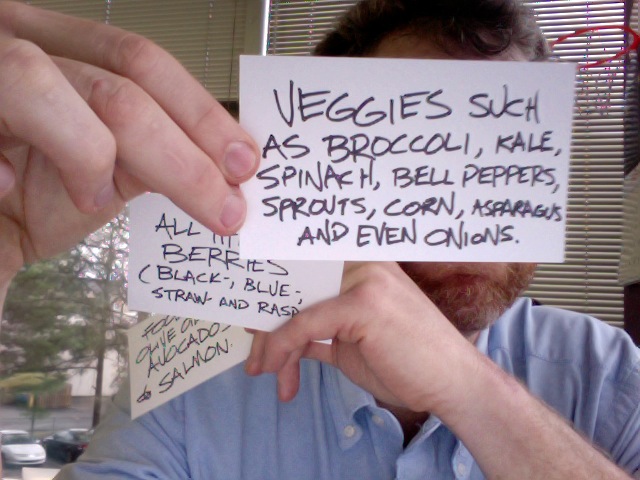 VEGGIES SUCH
AS BROCCOLI, KALE,
SPINACH, BELL PEPPERS,
SPROUTS, CORN, ASPARAGUS
AND EVEN ONIONS.
ALL
BERRIES
(BLACK-, BLUE-,
STRAW- AND RASP
OLIVE
AVOCADO
& SALMON.